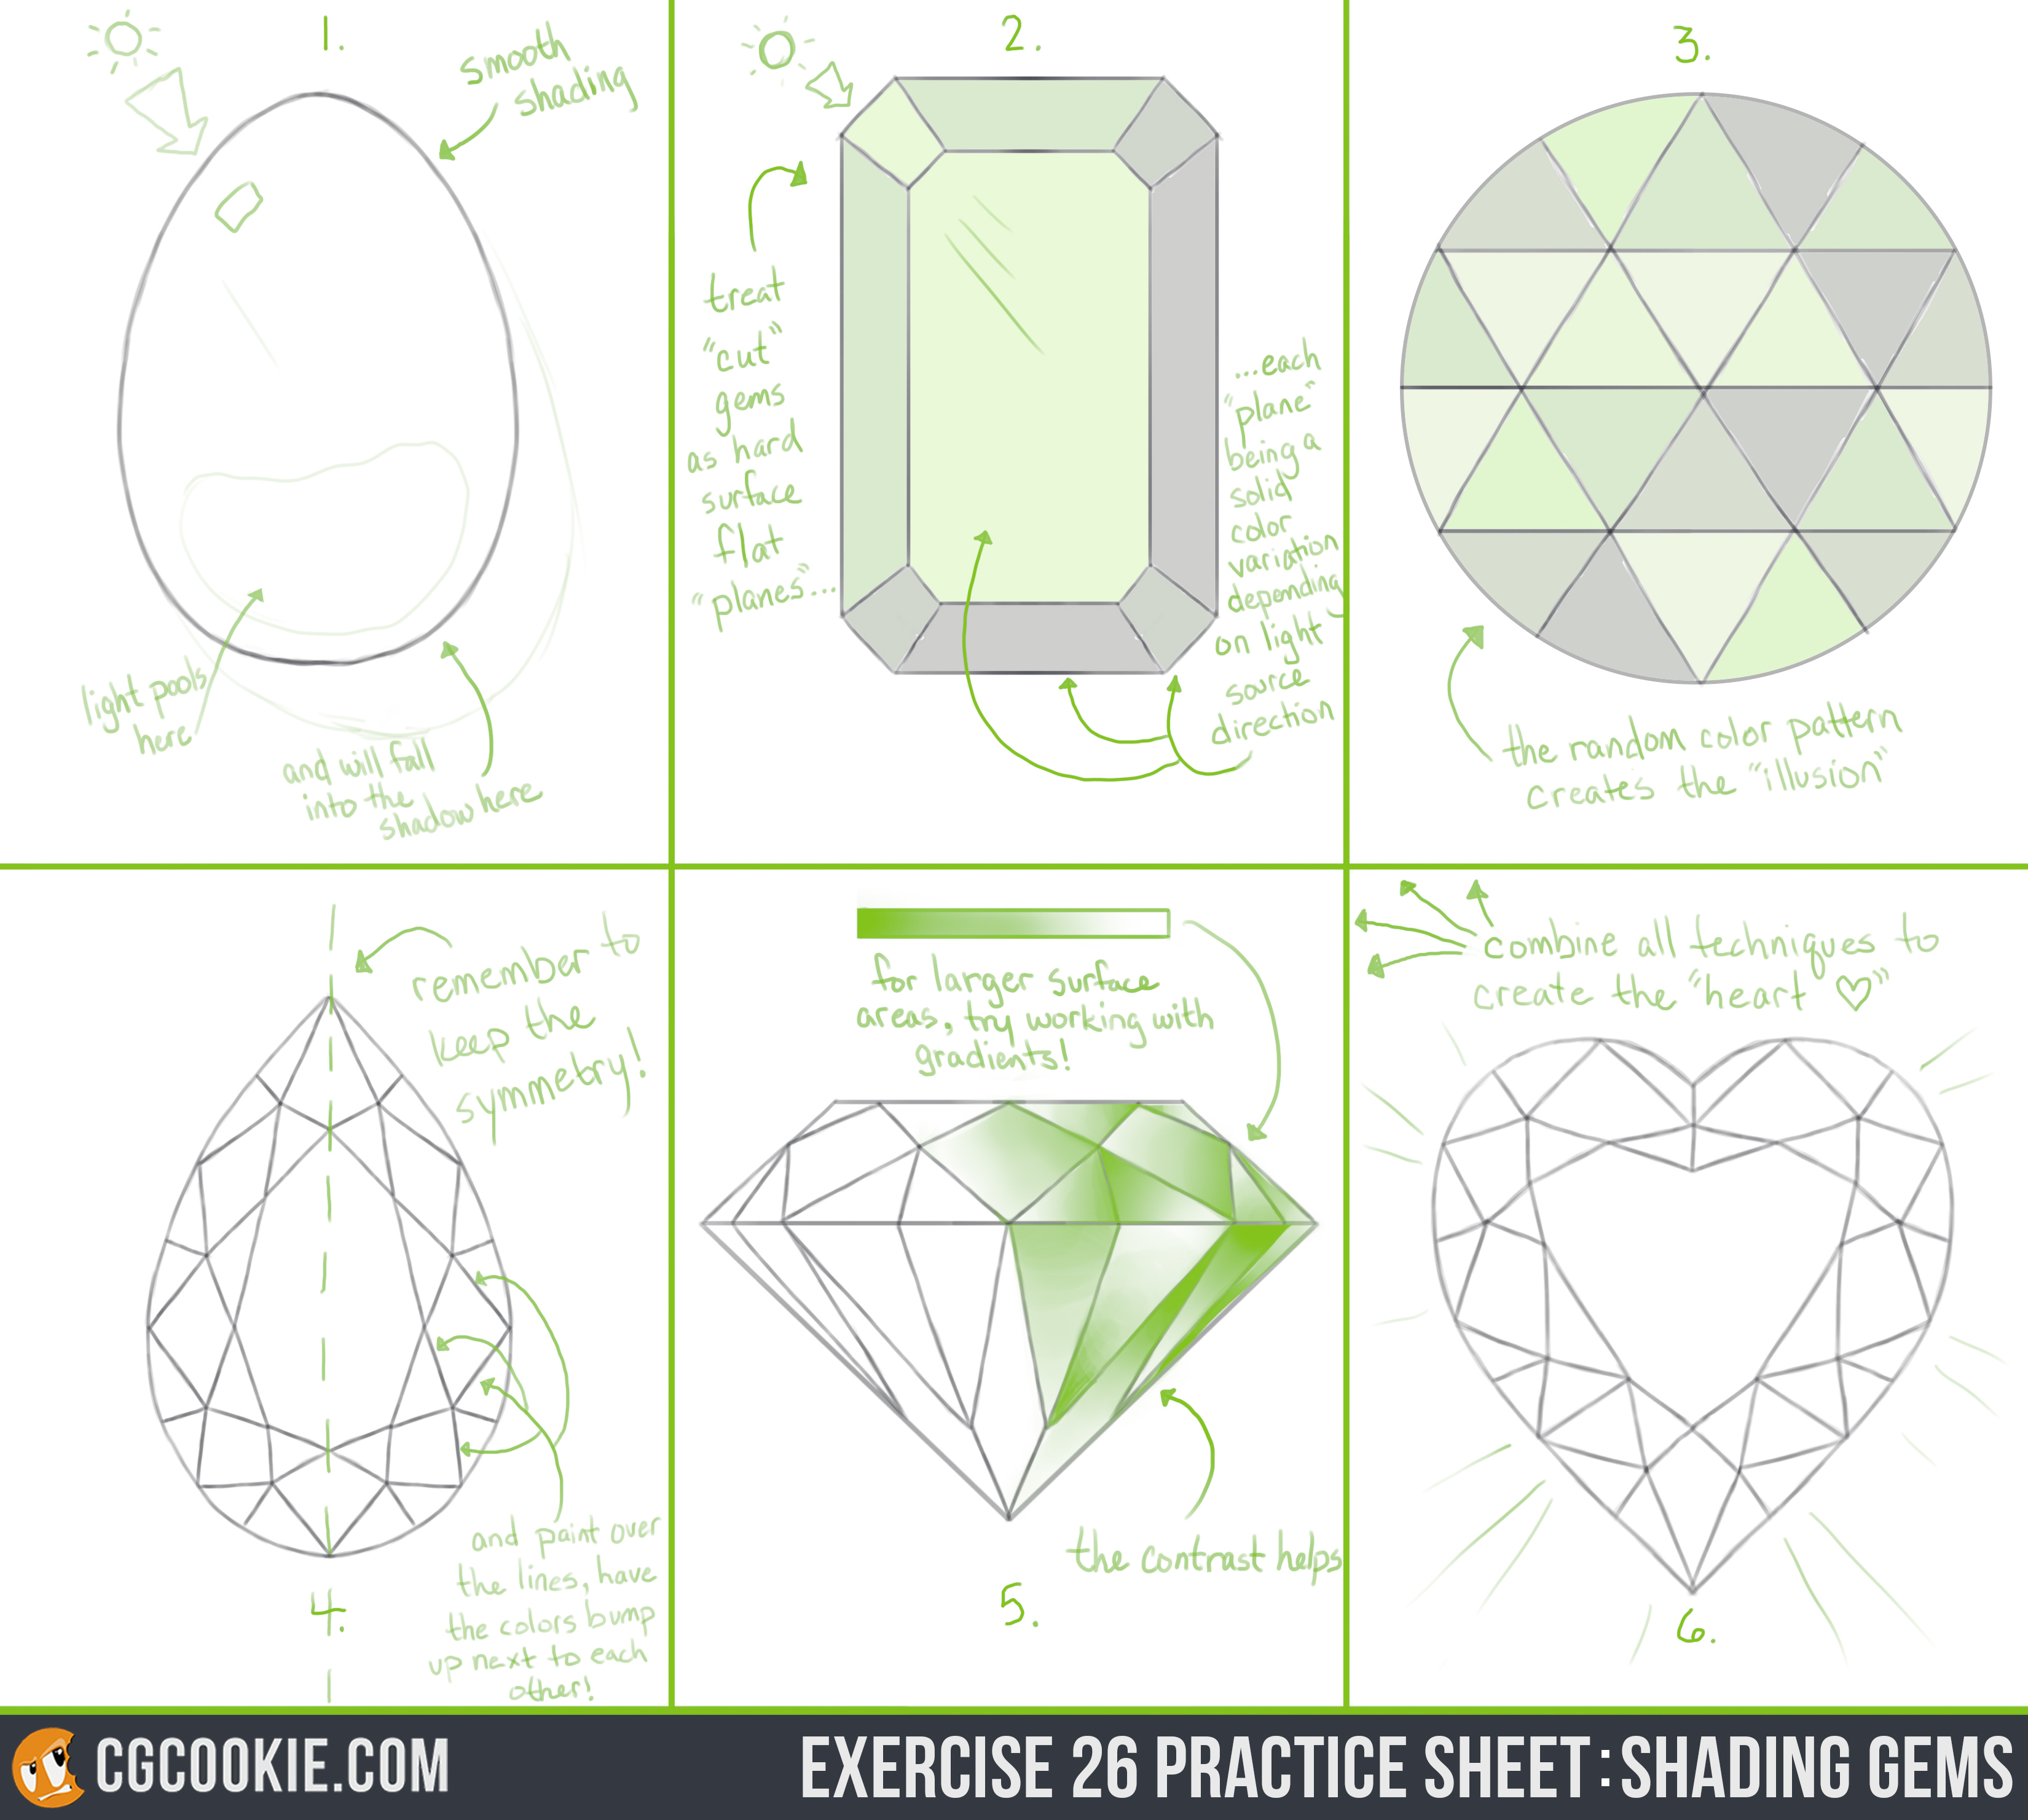 1.
smooth
shading
light pools
here
and will fall
into the
shadow here
2.
treat
"cut"
gems
as hard
surface
flat
"planes"...
...each
"plane"
being a
solid
color
variation
depending
on light
source
direction
3.
the random color pattern
creates the "illusion"
remember to
keep the
symmetry!
and paint over
the lines, have
the colors bump
up next to each
other!
4.
for larger surface
areas, try working with
gradients!
the contrast helps
5.
combine all techniques to
create the "heart ♡"
6.
CGCOOKIE.COM
EXERCISE 26 PRACTICE SHEET: SHADING GEMS